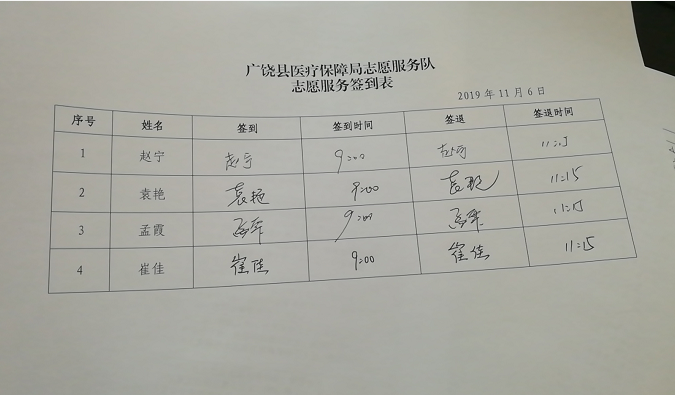 广饶县医疗保障局志愿服务队
志愿服务签到表
2019年11月6日
序号 姓名 签到 签到时间 签退 签退时间
1 赵宁 赵宁 9:00 赵宁 11:15
2 袁艳 袁艳 9:00 袁艳 11:15
3 孟霞 9:00 11:15
4 崔佳 崔佳 9:00 崔佳 11:15